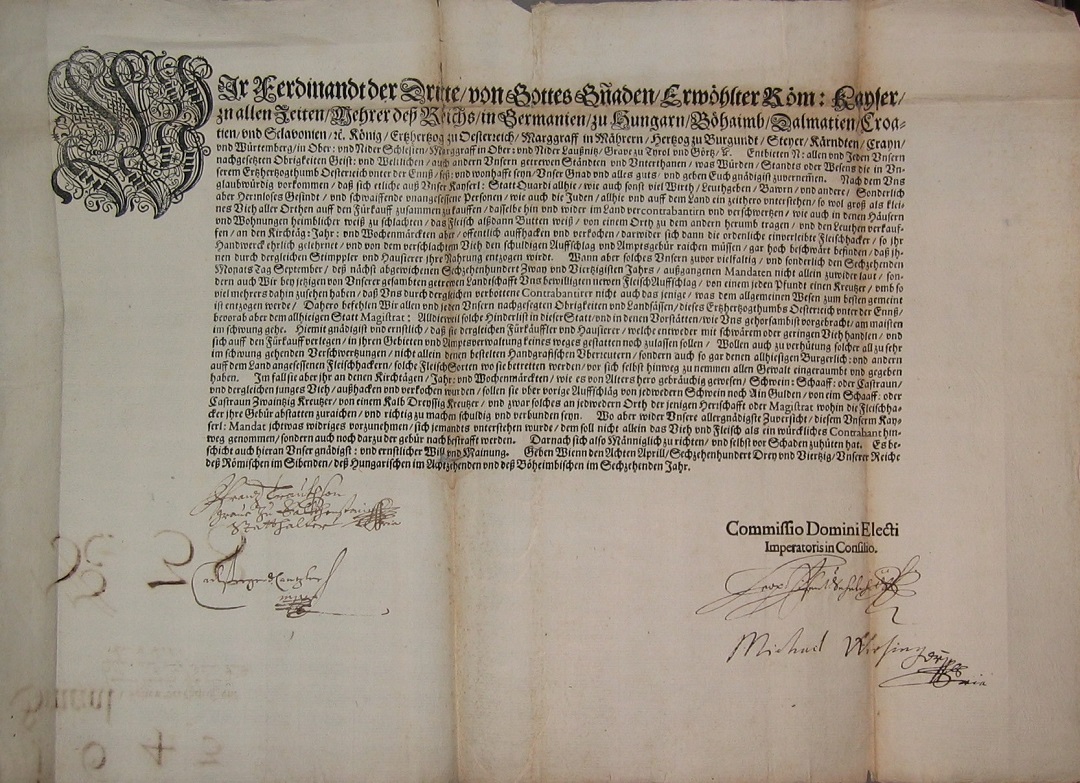 WJr Ferdinandt der Dritte / von Gottes Gnaden / Erwöhlter Röm: Kayser /
zu allen Zeiten / Mehrer deß Reichs / in Germanien / zu Hungarn / Böhaimb / Dalmatien / Croa-
tien / vnd Sclavonien / ꝛc. König / Ertzhertzog zu Oesterreich / Marggraff in Mährern / Hertzog zu Burgundt / Steyer / Kärndten / Crayn /
vnd Würtemberg / in Ober: vnd Nider Schlesien / Marggraff in Ober: vnd Nider Laußnitz / Grave zu Tyrol vnd Görtz / ꝛc. Entbieten N: allen vnd Jeden Vnsern
nachgesetzten Obrigkeiten Geist: vnd Weltlichen / auch andern Vnsern getrewen Ständten vnd Vnterthanen / was Würden / Standts oder Wesens die in Vn-
serm Ertzhertzogthumb Oesterreich vnter der Ennß / seß: vnd wonhafft seyn / Vnser Gnad vnd alles guts / vnd geben Euch gnädigist zuvernemen. Nach dem Vns
glaubwürdig vorkommen / daß sich etliche auß Vnser Kayserl: Statt Quardi allhie / wie auch sonst viel Wirth / Leuthgeben / Bawrn / vnd andere / Sonderlich
aber Herrnloses Gesindt / vnd schwaiffende vnangesessene Personen / wie auch die Juden / allhie vnd auff dem Land ein zeithero vnterstehen / so wol groß als klei-
nes Vich aller Orthen auff den Fürkauff zusammen zukauffen / dasselbe hin vnd wider im Land vercontrabantirn vnd verschwertzen / wie auch in denen Häusern
vnd Wohnungen haimblicher weiß zu schlachten / das Fleisch alßdann Butten weiß / von einem Orth zu dem andern herumb tragen / vnd den Leuthen verkauf-
fen / an den Kirchtäg: Jahr: vnd Wochenmärckten aber / offentlich auffhacken vnd verkochen / darwider sich dann die ordenliche einverleibte Fleischhacker / so ihr
Handwerck ehrlich gelehrnet / vnd von dem verschlachtem Vich den schuldigen Auffschlag vnd Amptsgebür raichen müssen / gar hoch beschwärt befinden / daß ih-
nen durch dergleichen Stimppler vnd Hausierer ihre Nahrung entzogen wirdt. Wann aber solches Vnsern zuvor vielfaltig / vnd sonderlich den Sechzehenden
Monats Tag September / deß nächst abgewichenen Sechzehenhundert Zway vnd Viertzigisten Jahrs / außgangenen Mandaten nicht allein zuwider laut / son-
dern auch Wir bey jetzigen von Vnserer gesambten getrewen Landschafft Vns bewilligten newen Fleisch Auffschlag / von einem jeden Pfundt einen Kreutzer / vmb so
viel mehrers dahin zusehen haben / daß Vns durch dergleichen verbottene Contrabantirer nicht auch das jenige / was dem allgemeinen Wesen zum besten gemeint
ist entzogen werde / Dahero befehlen Wir allen vnd jeden Vnsern nachgesetzten Obrigkeiten vnd Landsässen / dieses Ertzhertzogthumbs Oesterreich vnter der Ennß /
bevorab aber dem allhieigen Statt Magistrat: Alldieweil solche Hinderlist in dieser Statt / vnd in denen Vorstätten / wie Vns gehorsambist vorgebracht / am maisten
im schwung gehe. Hiemit gnädigist vnd ernstlich / daß sie dergleichen Fürkäuffler vnd Hausierer / welche entweder mit schwärem oder geringen Viech handlen / vnd
sich auff den Fürkauff verlegen / in ihren Gebieten vnd Amptsverwaltung keines weges gestatten noch zulassen sollen / Wollen auch zu verhütung solcher all zu sehr
im schwung gehenden Verschwertzungen / nicht allein denen bestelten Handgrafischen Vberreutern / sondern auch so gar denen allhiesigen Burgerlich: vnd andern
auff dem Land angesessenen Fleischhackern / solche Fleisch Sorten wo sie betretten werden / vor sich selbst hinweg zu nemmen allen Gewalt eingeraumbt vnd gegeben
haben. Im fall sie aber ihr an denen Kirchtägen / Jahr: vnd Wochenmärckten / wie es von Alters hero gebräuchig gewesen / Schwein: Schaaff: oder Castraun /
vnd dergleichen junges Vich / außhacken vnd verkochen wurden / sollen sie vber vorige Auffschläg von jedwedern Schwein noch Ain Gulden / von eim Schaaff: oder
Castraun Zwaintzig Kreutzer / von einem Kalb Dreyssig Kreutzer / vnd zwar solches an jedwedern Orth der jenigen Herrschafft oder Magistrat wohin die Fleischha-
cker ihre Gebür abstatten zuraichen / vnd richtig zu machen schuldig vnd verbunden seyn. Wo aber wider Vnsere allergnädigiste Zuversicht / diesem Vnserm Kay-
serl: Mandat ichtwas widriges vorzunehmen / sich jemandts vnterstehen wurde / dem soll nicht allein das Vich vnd Fleisch als ein würckliches Contrabant hin-
weg genommen / sondern auch noch darzu der gebür nach bestrafft werden. Darnach sich also Männiglich zu richten / vnd selbst vor Schaden zuhüten hat. Es be-
schicht auch hieran Vnser gnädigist: vnd ernstlicher Will vnd Mainung. Geben Wienn den Achten Aprill / Sechzehenhundert Drey vnd Viertzig / Vnserer Reiche
deß Römischen im Sibenden / deß Hungarischen im Achtzehenden vnd deß Böheimbischen im Sechzehenden Jahr.
Franz Trautson
Graue zu Falckhenstain
Statthalter
Commissio Domini Electi
Imperatoris in Consilio.
Michael